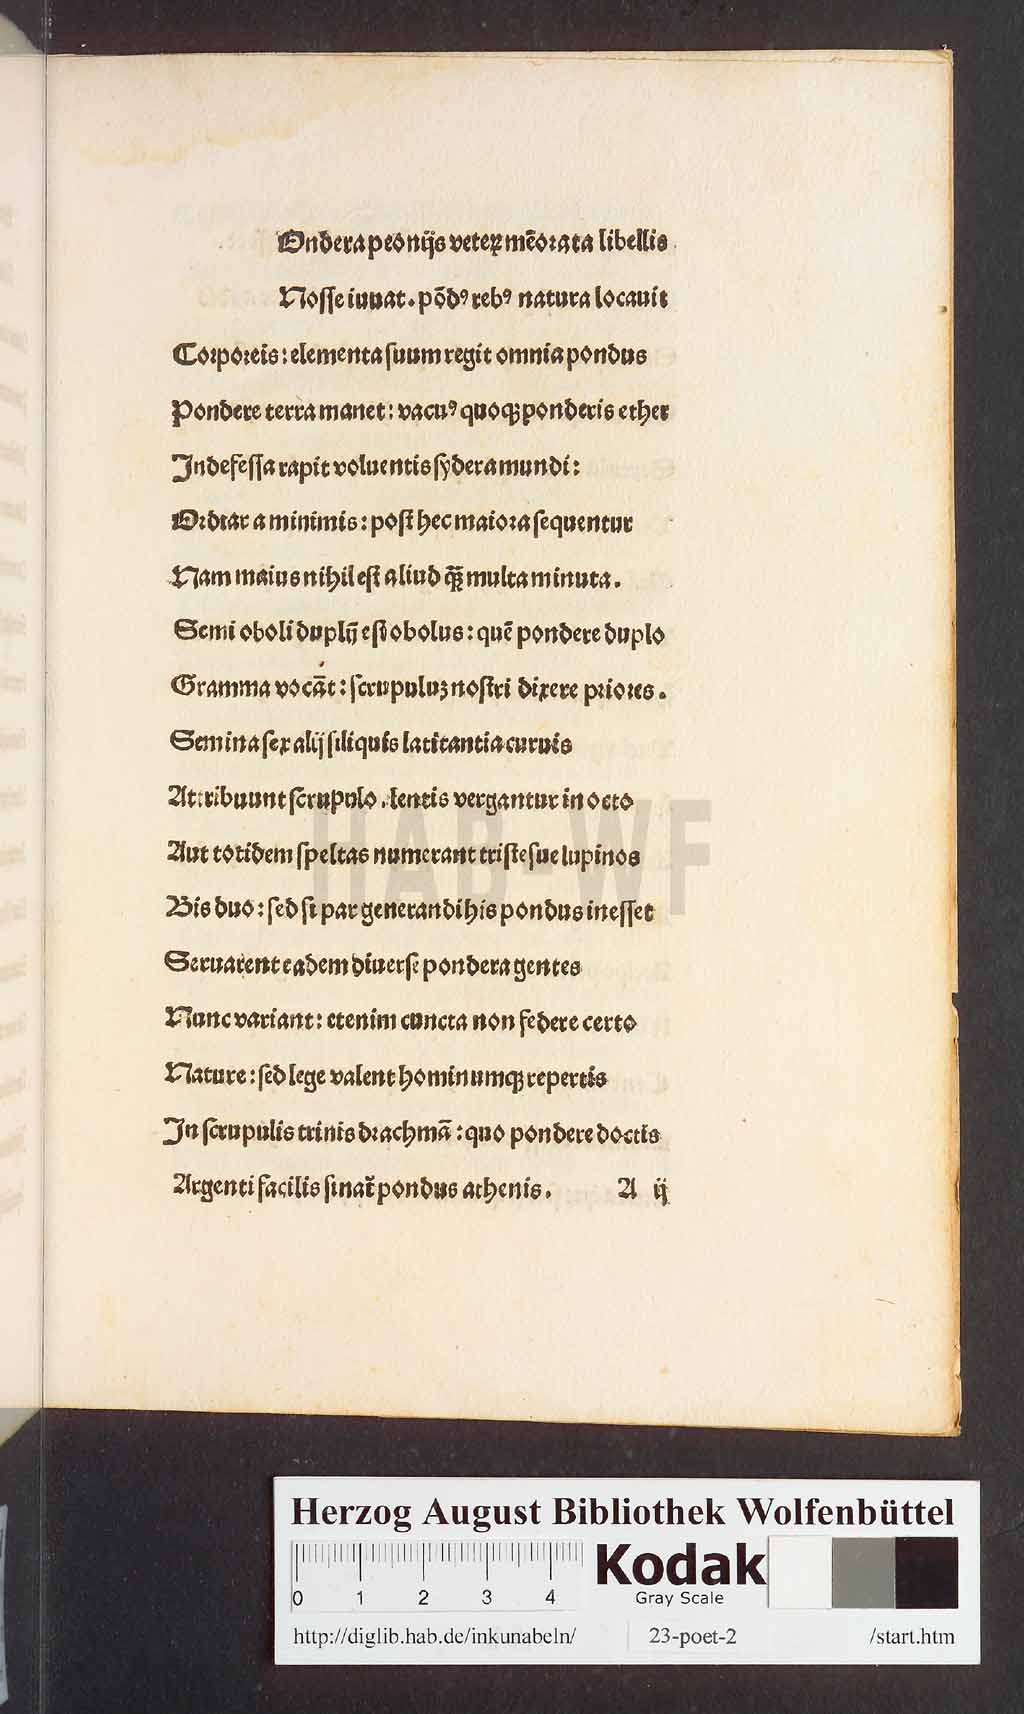 Ondera peonijs veteꝝ mēorata libellis
Nosse iuuat. põdꝰ rebꝰ natura locauit
Corporeis: elementa suum regit omnia pondus
Pondere terra manet: vacuꝰ quoqꝫ ponderis ether
Indefessa rapit voluentis sydera mundi:
Ordiar a minimis: post hec maiora sequentur
Nam maius nihil est aliud qȝ̃ multa minuta.
Semi oboli duplū est obolus: quē pondere duplo
Gramma vocāt: scrupuluȝ nostri dixere priores.
Semina sex alij siliquis latitantia curuis
Attribuunt scrupulo. lentis vergantur in octo
Aut totidem speltas numerant tristesue lupinos
Bis duo: sed si par generandi his pondus inesset
Seruarent eadem diuerse pondera gentes
Nunc variant: etenim cuncta non federe certo
Nature: sed lege valent hominumqꝫ repertis
In scrupulis trinis drachmā: quo pondere doctis
Argenti facilis sinat̃ pondus athenis. A ij
HAB-WF
Herzog August Bibliothek Wolfenbüttel
0 1 2 3 4
Kodak
Gray Scale
http://diglib.hab.de/inkunabeln/ 23-poet-2 /start.htm